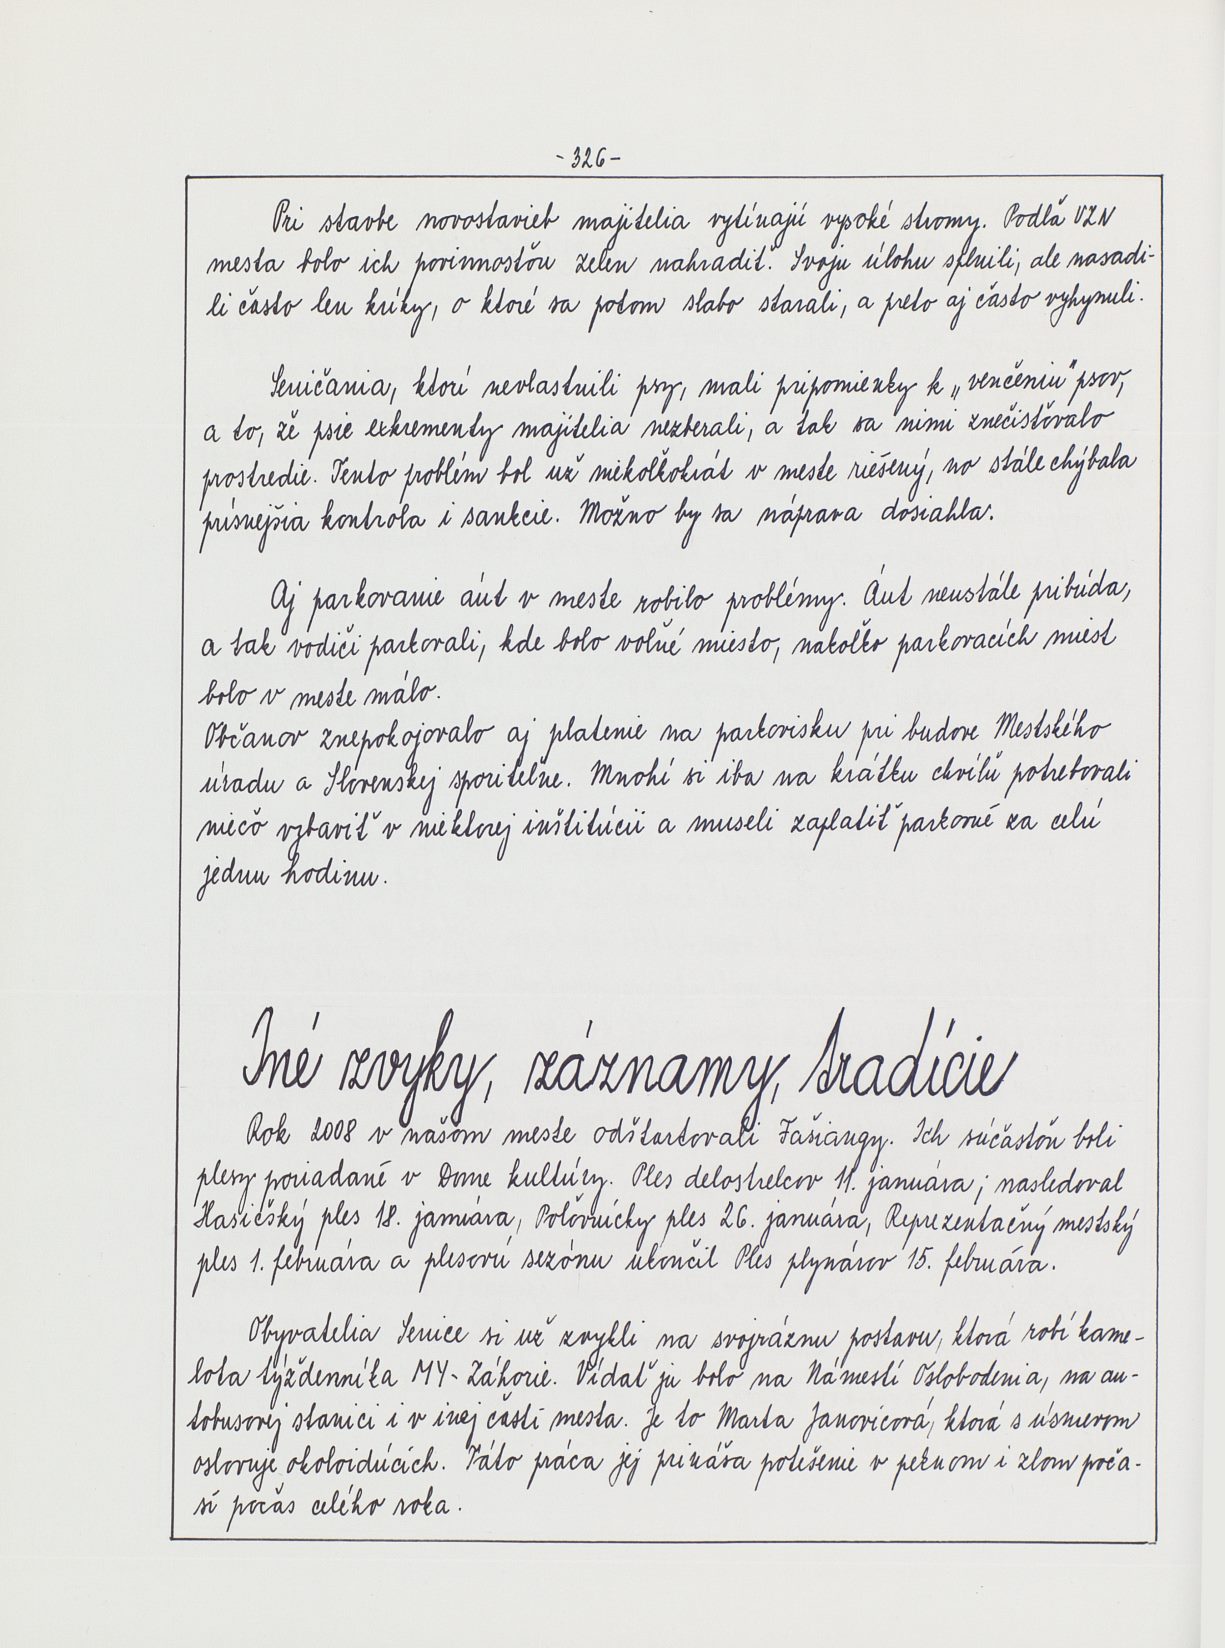 - 326 -
Pri stavbe novostavieb majitelia vytínajú vysoké stromy. Podľa VZN
mesta bolo ich povinnosťou zeleň nahradiť. Svoju úlohu splnili, ale nasadi-
li často len kríky, o ktoré sa potom slabo starali, a preto aj často vyhynuli.
Seničania, ktorí nevlastnili psy, mali pripomienky k „venčeniu" psov,
a to, že psie exkrementy majitelia nezberali, a tak sa nimi znečisťovalo
prostredie. Tento problém bol už niekoľkokrát v meste riešený, no stále chýbala
prísnejšia kontrola i sankcie. Možno by sa náprava dosiahla.
Aj parkovanie áut v meste robilo problémy. Áut neustále pribúda,
a tak vodiči parkovali, kde bolo voľné miesto, nakoľko parkovacích miest
bolo v meste málo.
Občanov znepokojovalo aj platenie na parkovisku pri budove Mestského
úradu a Slovenskej sporiteľne. Mnohí si iba na krátku chvíľu potrebovali
niečo vybaviť v niektorej inštitúcii a museli zaplatiť parkovné za celú
jednu hodinu.
Iné zvyky, záznamy, tradície
Rok 2008 v našom meste odštartovali Fašiangy. Ich súčasťou boli
plesy poriadané v Dome kultúry. Ples delostrelcov 11. januára, nasledoval
Hasičský ples 18. januára, Poľovnícky ples 26. januára, Reprezentačný mestský
ples 1. februára a plesovú sezónu ukončil Ples plynárov 15. februára.
Obyvatelia Senice si už zvykli na svojráznu postavu, ktorá robí kame-
lota týždenníka MY- Záhorie. Vídať ju bolo na Námestí Oslobodenia, na au-
tobusovej stanici i v inej časti mesta. Je to Marta Janovicová, ktorá s úsmevom
oslovuje okoloidúcich. Táto práca jej prináša potešenie v peknom i zlom poča-
sí počas celého roka.